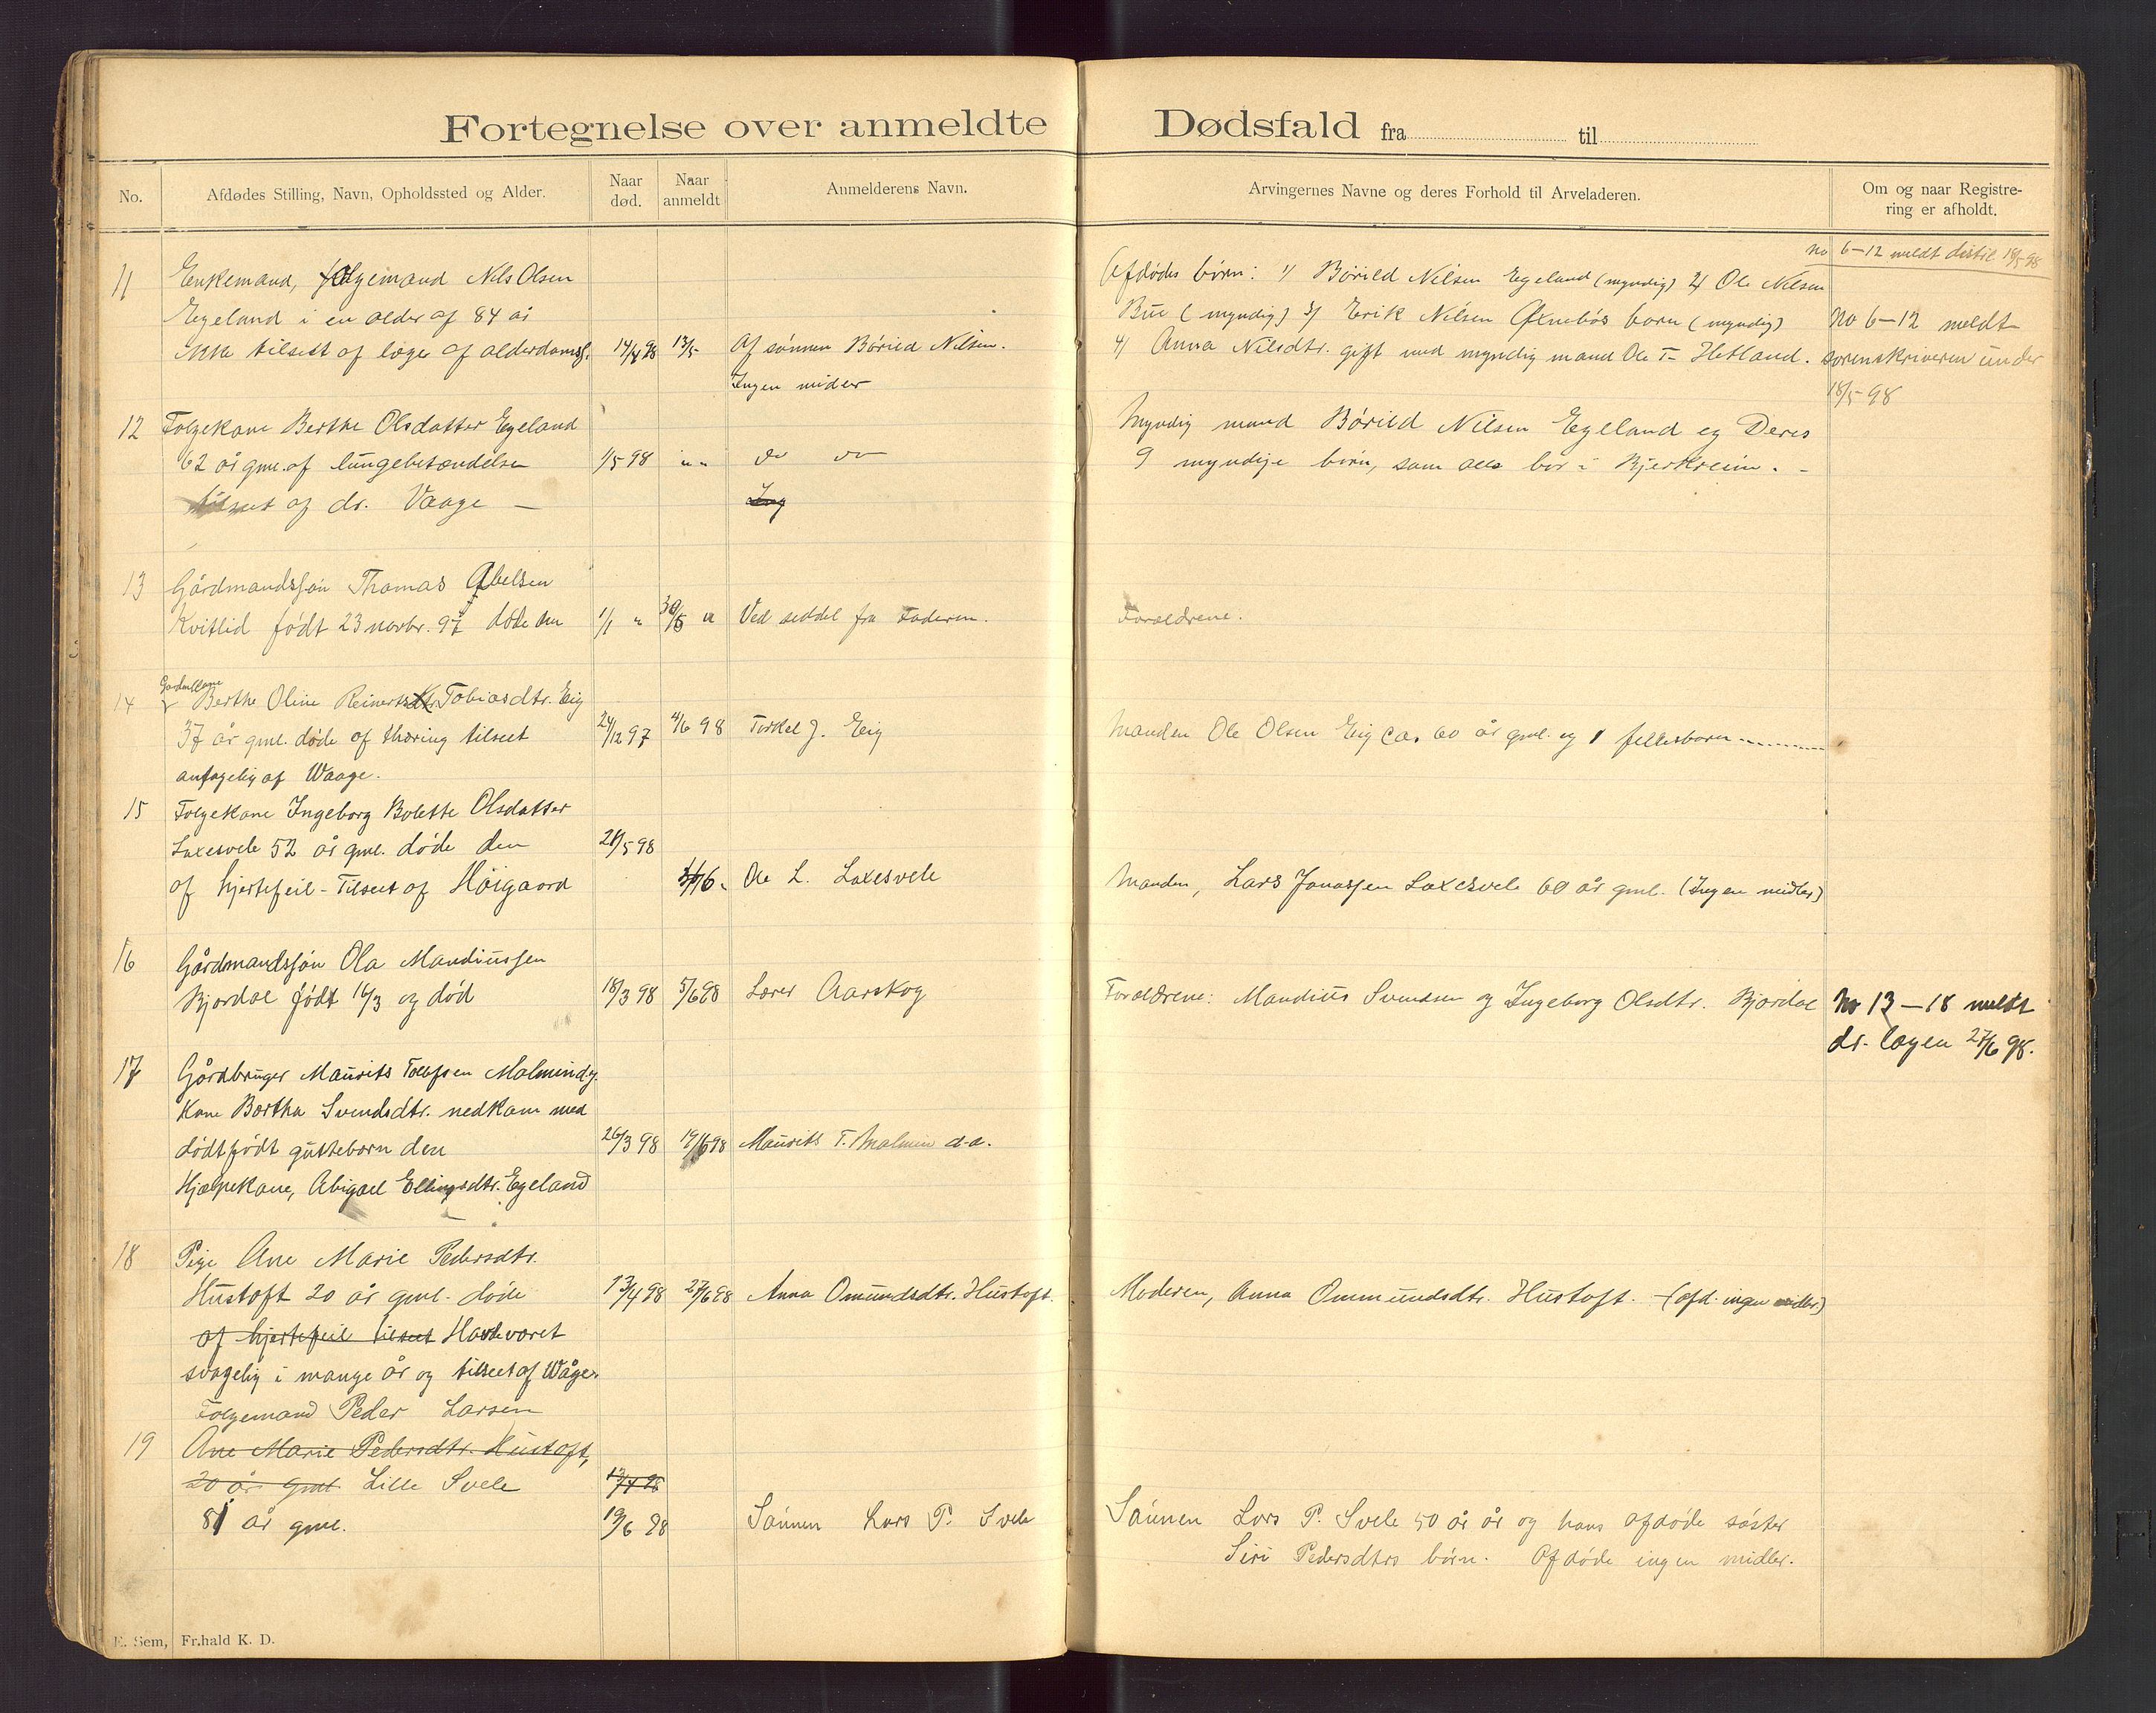 Fortegnelse over anmeldte Dødsfald fra til
No.
Afdødes Stilling, Navn, Opholdssted og Alder.
Naar død.
Naar anmeldt
Anmelderens Navn.
Arvingernes Navne og deres Forhold til Arveladeren.
Om og naar Registre-
ring er afholdt.
No 6-12 meldt 18/5-98
11 Enkemand, folgemand Nils Olsen
Egeland i en alder af 84 år
ikke tilseet af læge af alderdomsf. 14/4 98 13/5- Af sønnen Børild Nilsen.
Ingen midler
Afdødes børn: 1/ Børild Nilsen Egeland (myndig) 2/ Ole Nilsen
Bue (myndig) 3/ Erik Nilsen børn (myndig)
4/ Anna Nilsdtr. gift med myndig mand Ole T- Hetland.
No 6-12 meldt
sorenskriveren under
18/5-98
12 Folgekone Berthe Olsdatter Egeland
62 år gml. af lungebetændelse 1/5 98 " " do do
tilseet af dr. Vaage -
Ing
Myndig mand Børild Nilsen Egeland og Deres
9 myndige børn, som alle bor i Bjerkreim. -
13 Gårdmandssøn Thomas Abelsen
Kvitlid født 23 novbr. 97 døde den 1/1 " 30/5 " Ved seddel fra Faderen.
Forældrene.
14 Gardmkone Berthe Oline Reinertsdtr. Tobiasdtr. Eig
37 år gml. døde af tæring tilseet 24/12 97 4/6 98 Torkel J. Eig
antagelig af Waage.
Manden Ole Olsen Eig ca. 60 år gml. og 1 fellesbarn
15 Folgekone Ingeborg Bolette Olsdatter
Laxesvele 52 år gml. døde den 21/5 98
af hjertefeil - Tilseet af Høigaard Ole L. Laxesvele
Manden, Lars Jonassen Laxesvele 60 år gml. (Ingen midler)
16 Gårdmandssøn Ola Mandiussen
Bjordal født 16/3 og død 18/3 98 5/6 98 Lærer Aarskog
Forældrene: Mandius Svendsen og Ingeborg Olsdtr. Bjordal
No 13-18 meldt
dr. lægen 27/6 98.
17 Gårdbruger Maurits Tollefsen Malmin d.y.
Kone Bertha Svendsdtr. nedkom med
dødtfødt guttebarn den 26/3 98 19/6 98 Maurits T. Malmin d.a.
Hjælpekone, Abigael Ellingsdtr. Egeland
18 Pige Ane Marie Pedersdtr.
Hustoft 20 år gml. døde 13/4 98 27/6 98 Anna Omundsdtr. Hustoft.
Moderen, Anna Ommundsdtr. Hustoft. - (afd. ingen midler)
af hjertefeil tilseet Havde været
svagelig i mange år og tilseet af Wåge.
Folgemand Peder Larsen
19 Ane Marie Pedersdtr. Hustoft,
20 år gml. Lille Svele 13/4 98
81 år gml. 19/6 98 Sønnen Lars P. Svele
Sønnen Lars P. Svele 50 år år og hans afdøde søster
Siri Pedersdtrs børn. Afdøde ingen midler.
E. Sem, Fr.hald K. D.